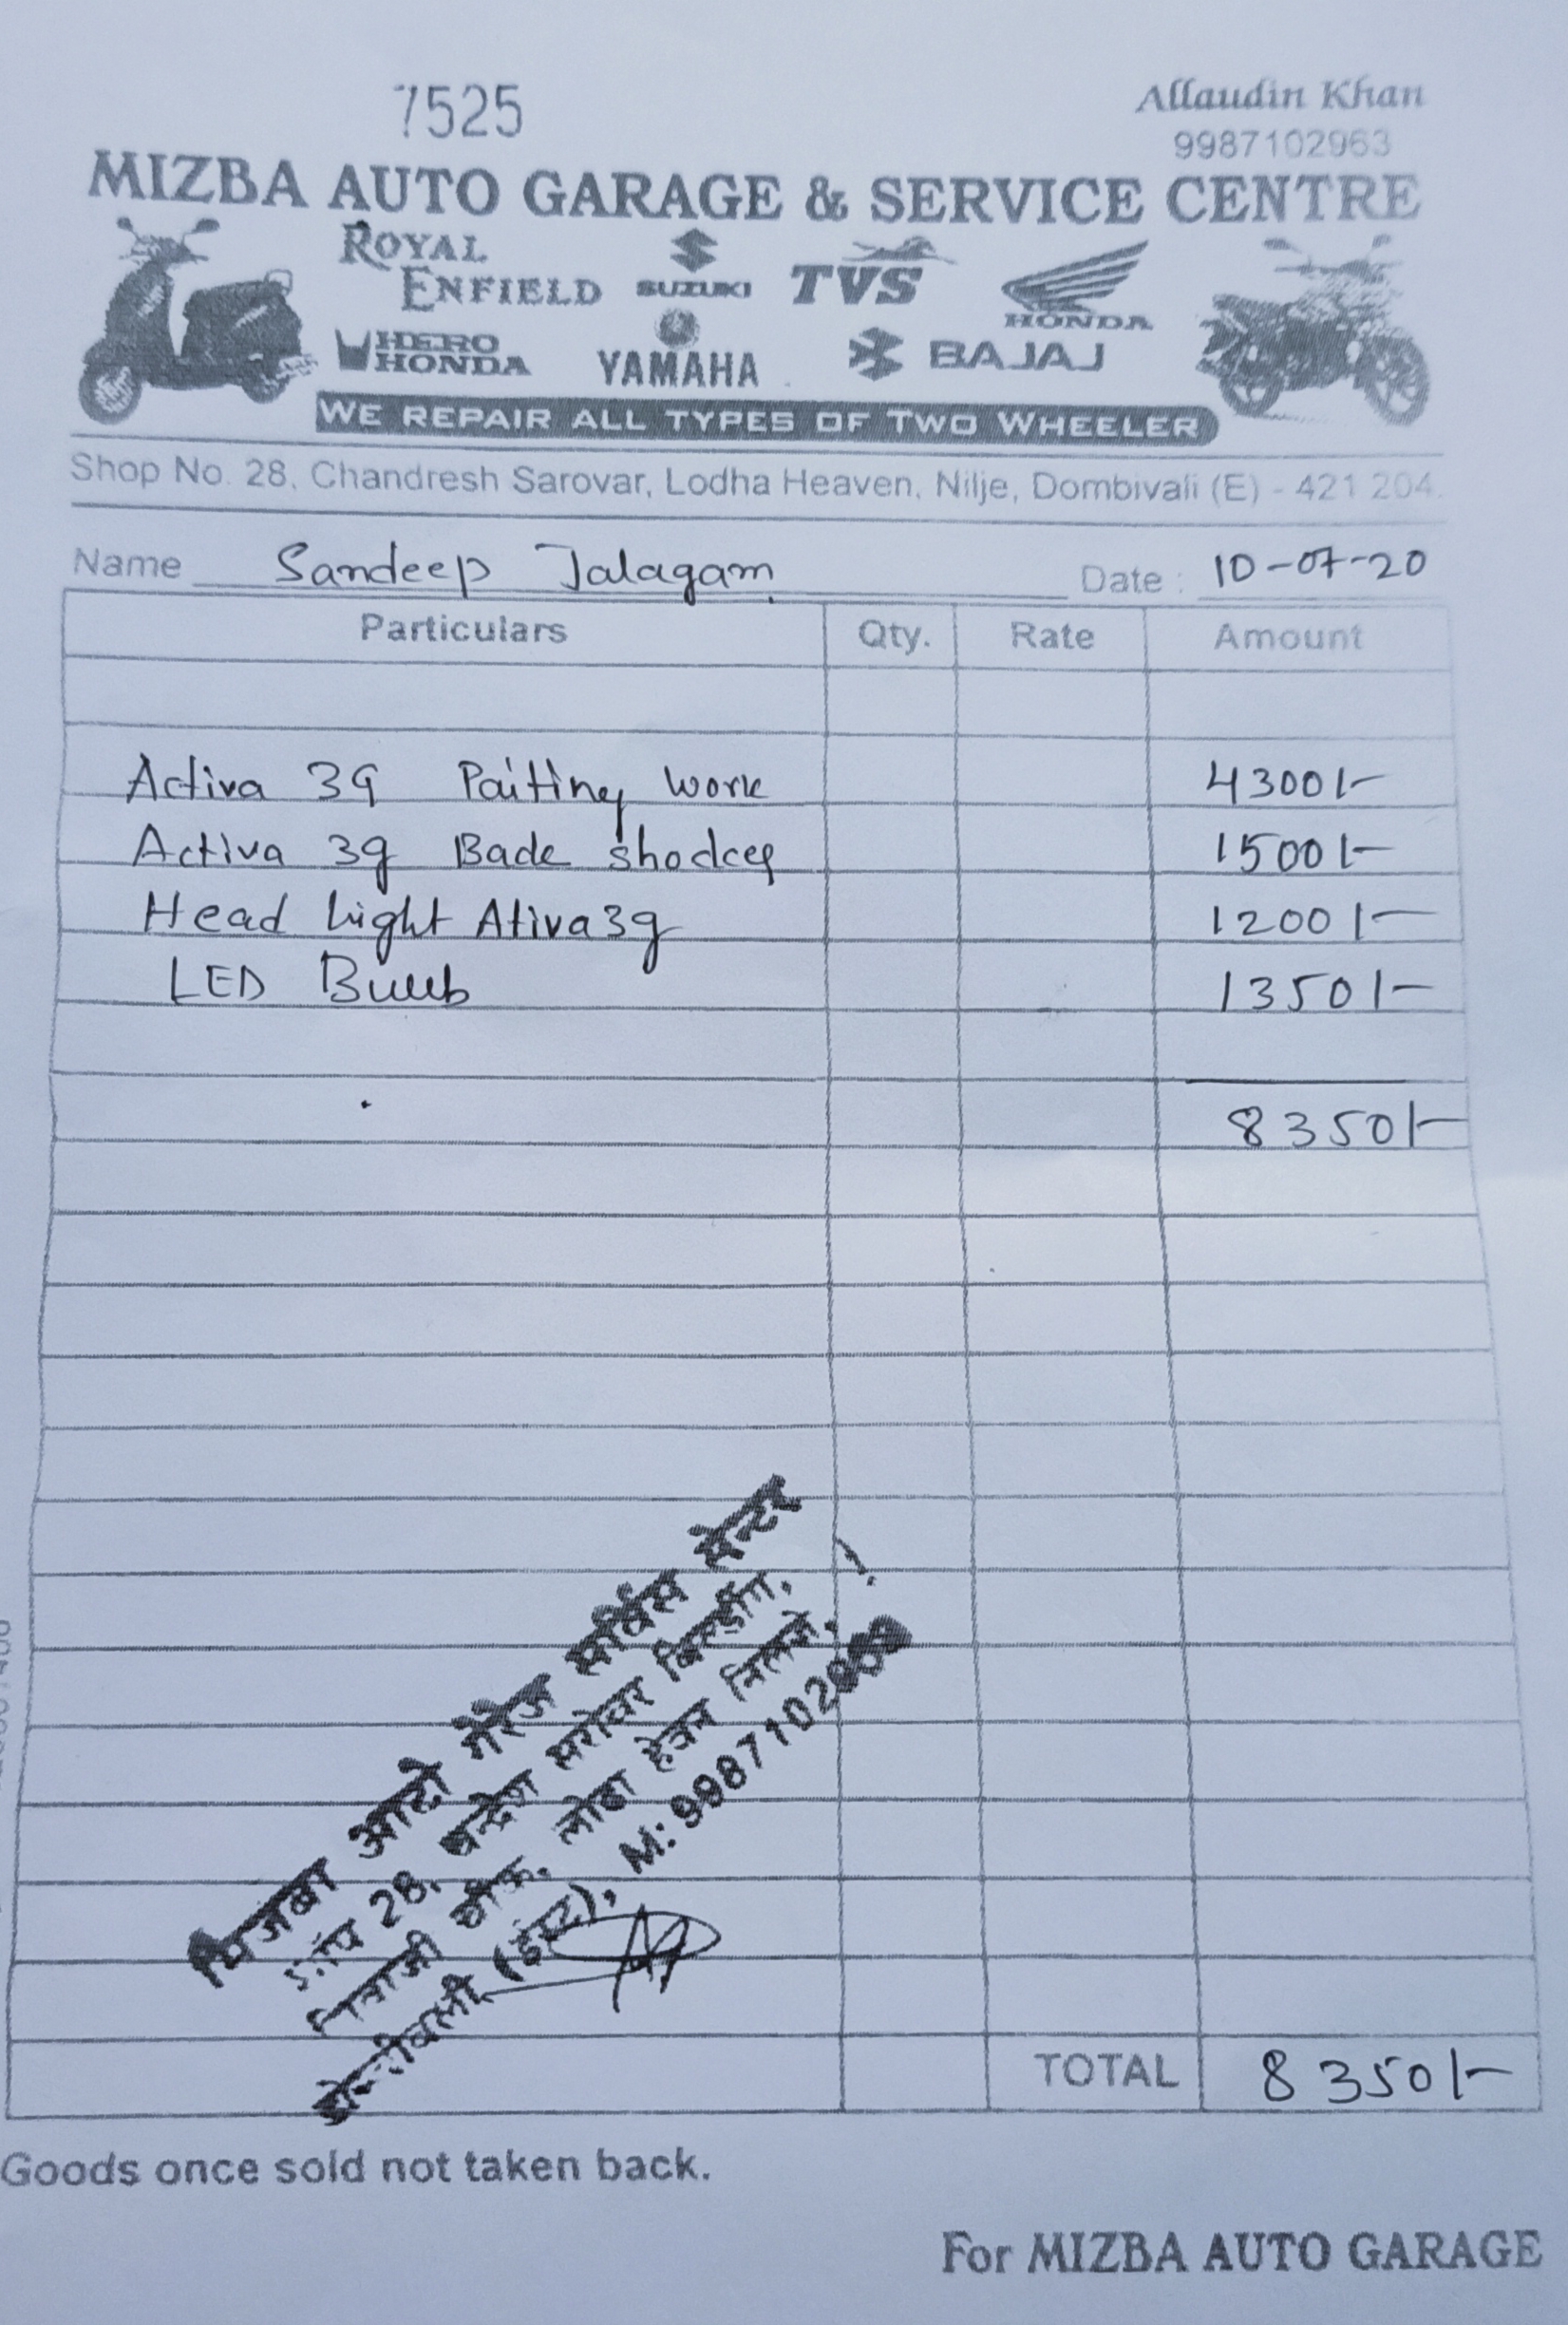 7525
Allaudin Khan
9987102963
MIZBA AUTO GARAGE & SERVICE CENTRE
ROYAL ENFIELD
SUZUKI
TVS
HONDA
HERO HONDA
YAMAHA
BAJAJ
WE REPAIR ALL TYPES OF TWO WHEELER
Shop No. 28, Chandresh Sarovar, Lodha Heaven, Nilje, Dombivali (E) - 421 204.
Name Sandeep Jalagam Date : 10-07-20
Particulars Qty. Rate Amount
Activa 3G Paiting work 4300/-
Activa 3g Back shocker 1500/-
Head Light Ativa 3g 1200/-
LED Bulb 1350/-
8350/-
मिजबा आटो गेरेज सर्विस सेन्टर
शॉप 28, चन्द्रेश सरोवर बिल्डींग,
शिवाजी चौक, लोढा हेवन निलजे,
डोम्बीवली (ईस्ट), M: 9987102963
TOTAL 8350/-
Goods once sold not taken back.
For MIZBA AUTO GARAGE